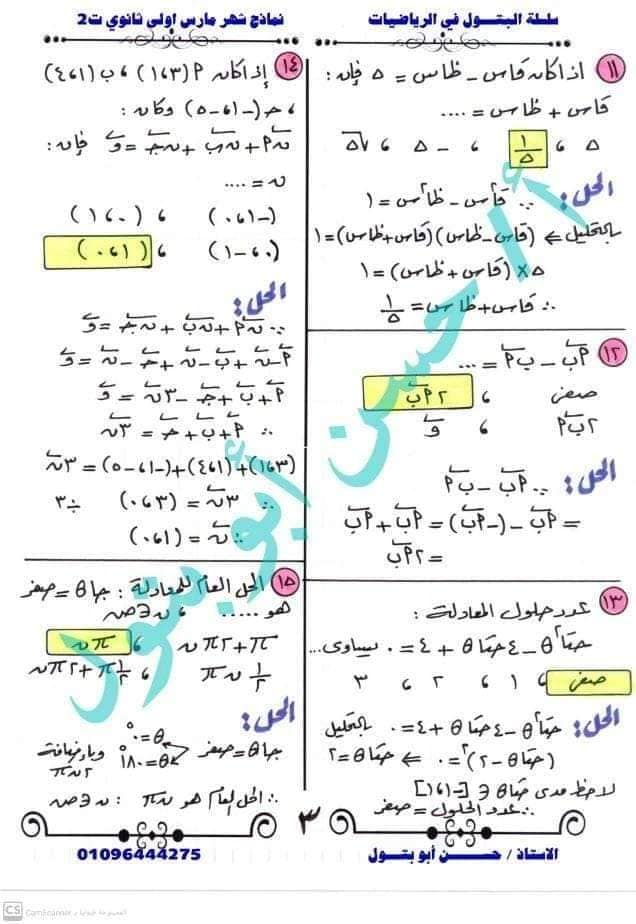 سلسلة البتــول في الرياضيات
نماذج شهر مارس اولى ثانوي ت2
١١ اذا كان قاس - ظاس = ٥ فإن :
قاس + ظاس = ....
٥ ، ١/٥ ، -٥ ، √٥
الحل : ∵ قا²س - ظا²س = ١
بالتحليل ⇐ (قاس - ظاس)(قاس + ظاس) = ١
٥ × (قاس + ظاس) = ١
∴ قاس + ظاس = ١/٥
١٢ أب - ب أ = ...
صفر ، ٢ أب
٢ ب أ ، و
الحل : ∵ أب - ب أ
= أب - (-أب) = أب + أب
= ٢ أب
١٣ عدد حلول المعادلة :
حتا²θ - ٤ حتاθ + ٤ = ٠ يساوى...
صفر ، ١ ، ٢ ، ٣
الحل : حتا²θ - ٤ حتاθ + ٤ = ٠ بالتحليل
(حتاθ - ٢)² = ٠ ⇐ حتاθ = ٢
لاحظ مدى حتاθ ∈ [-١،١]
∴ عدد الحلول = صفر
١٤ إذا كان أ (٣،١) ، ب (١،٤)
، حـ (-١،-٥) وكان :
ن أ + ن ب + ن جـ = و فإن :
ن = ....
(-١،٠) ، (٠،١)
(٠،-١) ، (١،٠)
الحل :
∵ ن أ + ن ب + ن جـ = و
أ - ن + ب - ن + حـ - ن = و
أ + ب + جـ - ٣ن = و
∴ أ + ب + حـ = ٣ن
(٣،١) + (١،٤) + (-١،-٥) = ٣ن
∴ ٣ن = (٣،٠) ÷ ٣
∴ ن = (١،٠)
١٥ الحل العام للمعادلة : جاθ = صفر
هو ..... ، ن ∈ ص
π + ٢πن ، πن
١/٢ πن ، π/٢ + ٢πن
الحل :
جاθ = صفر
θ = ٠°
θ = ١٨٠°
وبإضافة
٢πن
∴ الحل العام هو πن : ن ∈ ص
أ/حسن أبو بتول
الاستاذ / حـســـن أبو بتـــول
٣
01096444275
CS CamScanner الممسوحة ضوئيا بـ